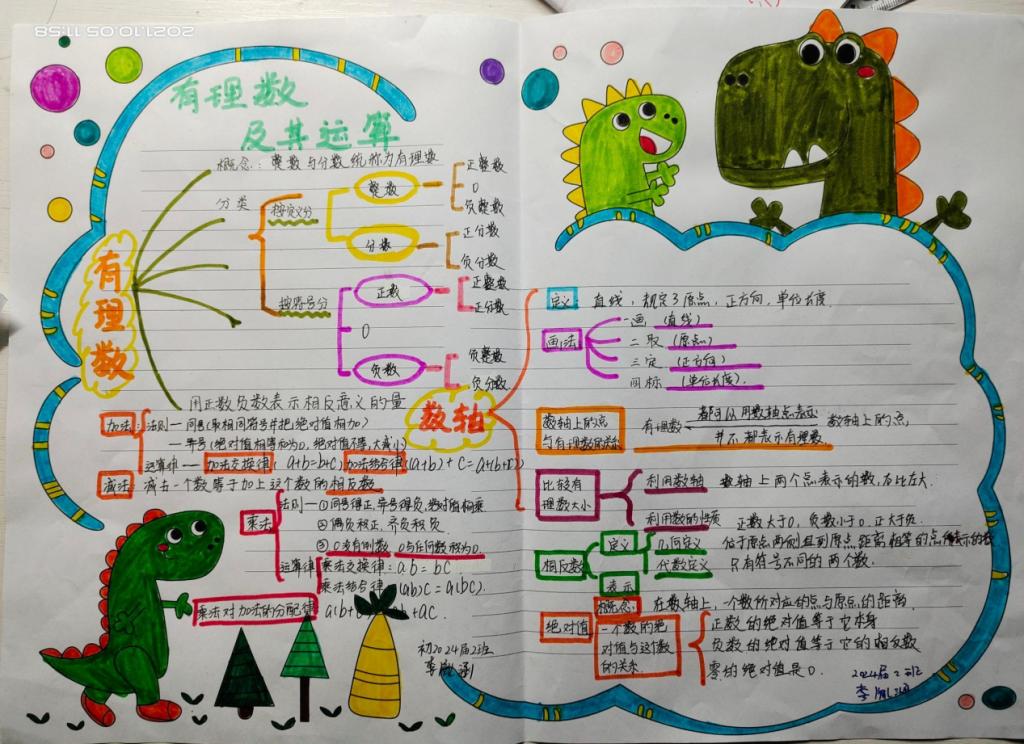 2021.10.05 11:58
有理数
及其运算
有理数
概念：整数与分数统称为有理数
分类
按定义分
整数
正整数
0
负整数
分数
正分数
负分数
按符号分
正数
正整数
正分数
0
负数
负整数
负分数
用正数负数表示相反意义的量
加法：法则—同号(取相同符号并把绝对值相加)
—异号(绝对值相等和为0，绝对值不等，大减小)
运算律—加法交换律：a+b=b+c) 加法结合律(a+b)+c=a+(b+c)
减法 减去一个数等于加上这个数的相反数
乘法
法则—①同号得正，异号得负，绝对值相乘
②偶负积正，奇负积负
③0没有倒数，0与任何数积为0。
运算律
乘法交换律：ab=bc
乘法结合律：(ab)c=a(bc).
乘法对加法的分配律 ac.
初2024届2班
数轴
定义：直线，规定了原点，正方向，单位长度.
画法
一画 (直线)
二取 (原点)
三定 (正方向)
四标 (单位长度).
数轴上的点
与有理数的关系
有理数 都可以用数轴点表示 数轴上的点,
并不都表示有理数.
比较有
理数大小
利用数轴 数轴上两个点表示的数，右比左大.
利用数的性质 正数大于0，负数小于0，正大于负.
相反数
定义
几何定义 位于原点两侧且到原点距离相等的点所表示的数
代数定义 只有符号不同的两个数.
表示
绝对值
概念: 在数轴上，一个数所对应的点与原点的距离
一个数的绝
对值与这个数
的关系
正数的绝对值等于它本身
负数的绝对值等于它的相反数
零的绝对值是0.
2024届2班